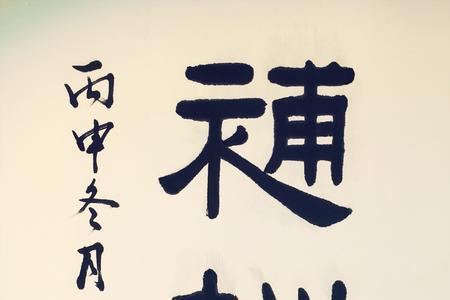 補
丙申冬月